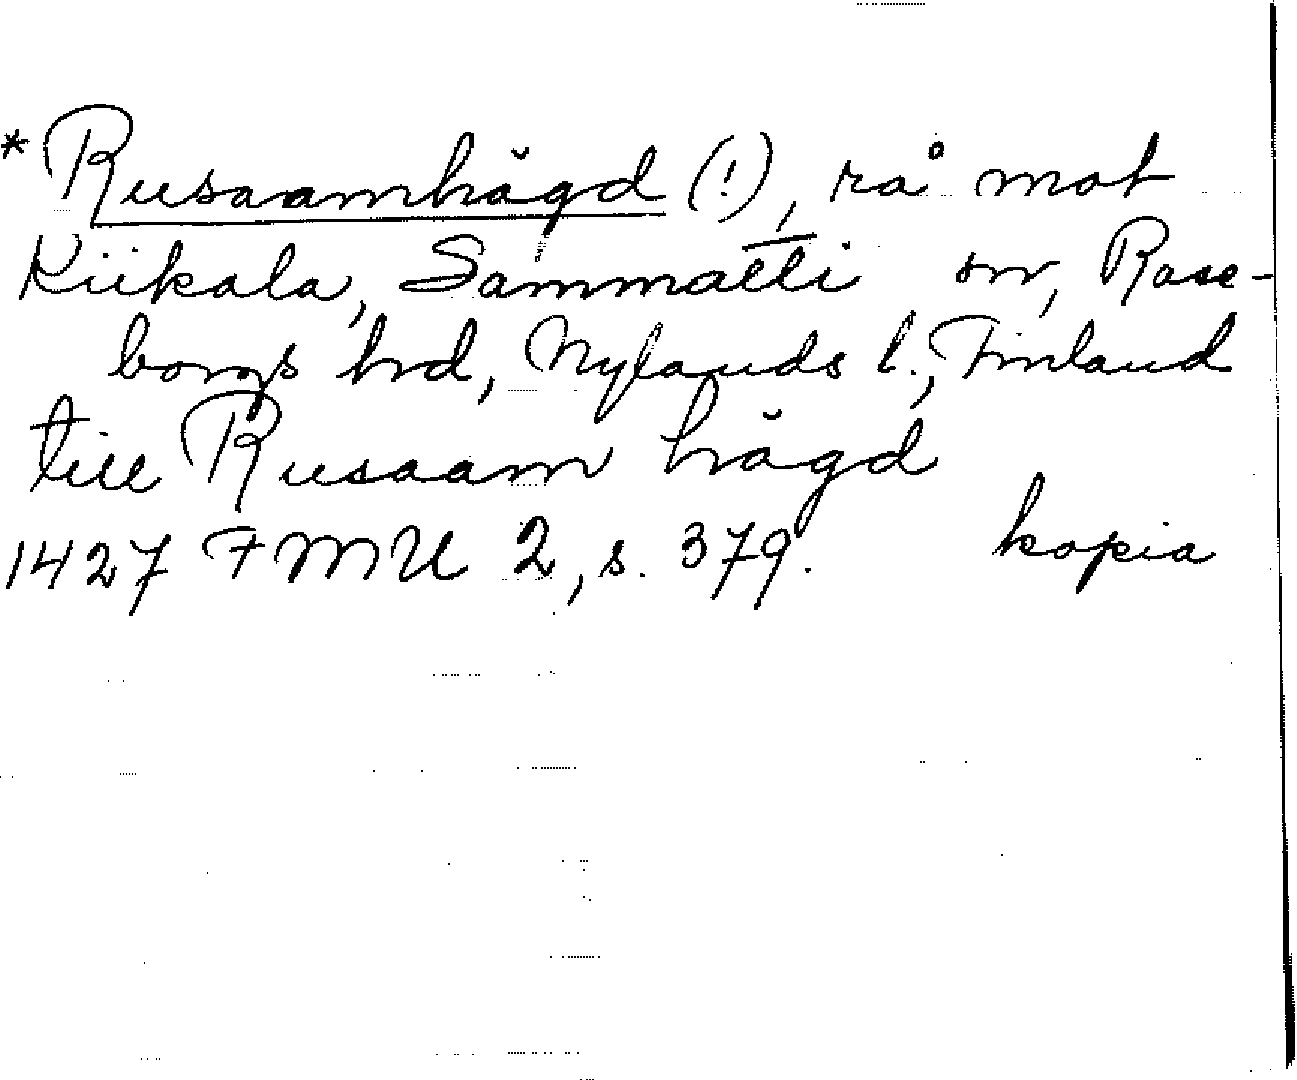 *Rusaamhågd (!), rå mot
Kiikala, Sammatti sn, Rase-
borgs hrd, Nylands l., Finland
till Rusaam hågd
1427 FMU 2, s. 379. kopia